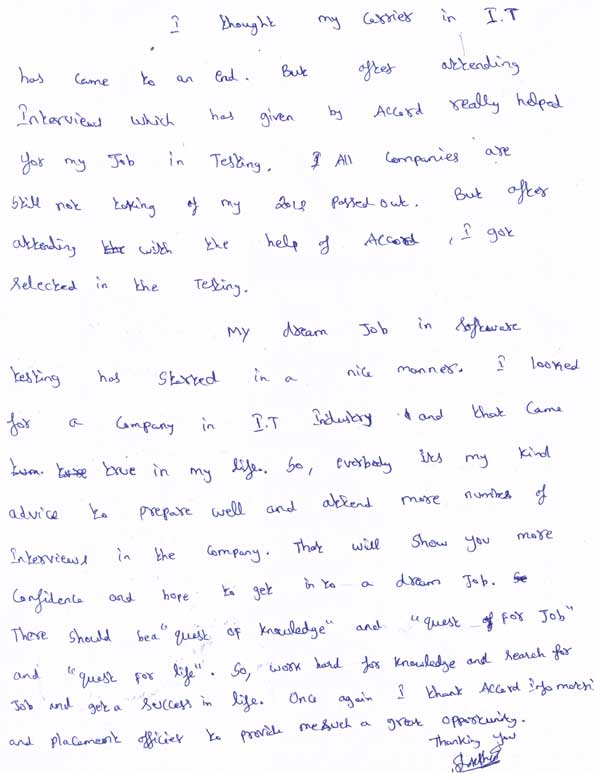 I thought my carrier in I.T
has came to an end. But after attending
Interviews which has given by Accord really helped
for my Job in Testing. All Companies are
still not taking of my 2014 Passed out. But after
attending with the help of Accord, I got
selected in the Testing.
My dream Job in Software
testing has Started in a nice manner. I looked
for a Company in I.T Industry and that Came
true in my life. So, everybody its my kind
advice to prepare well and attend more number of
Interviews in the Company. That will show you more
Confidence and hope to get in to a dream Job.
There should be a "quest of knowledge" and "quest FOR Job"
and "quest FOR life". So, work hard for knowledge and search for
Job and get a success in life. Once again I thank Accord Info matri
and placement officier to provide me such a great opportunity.
Thanking you